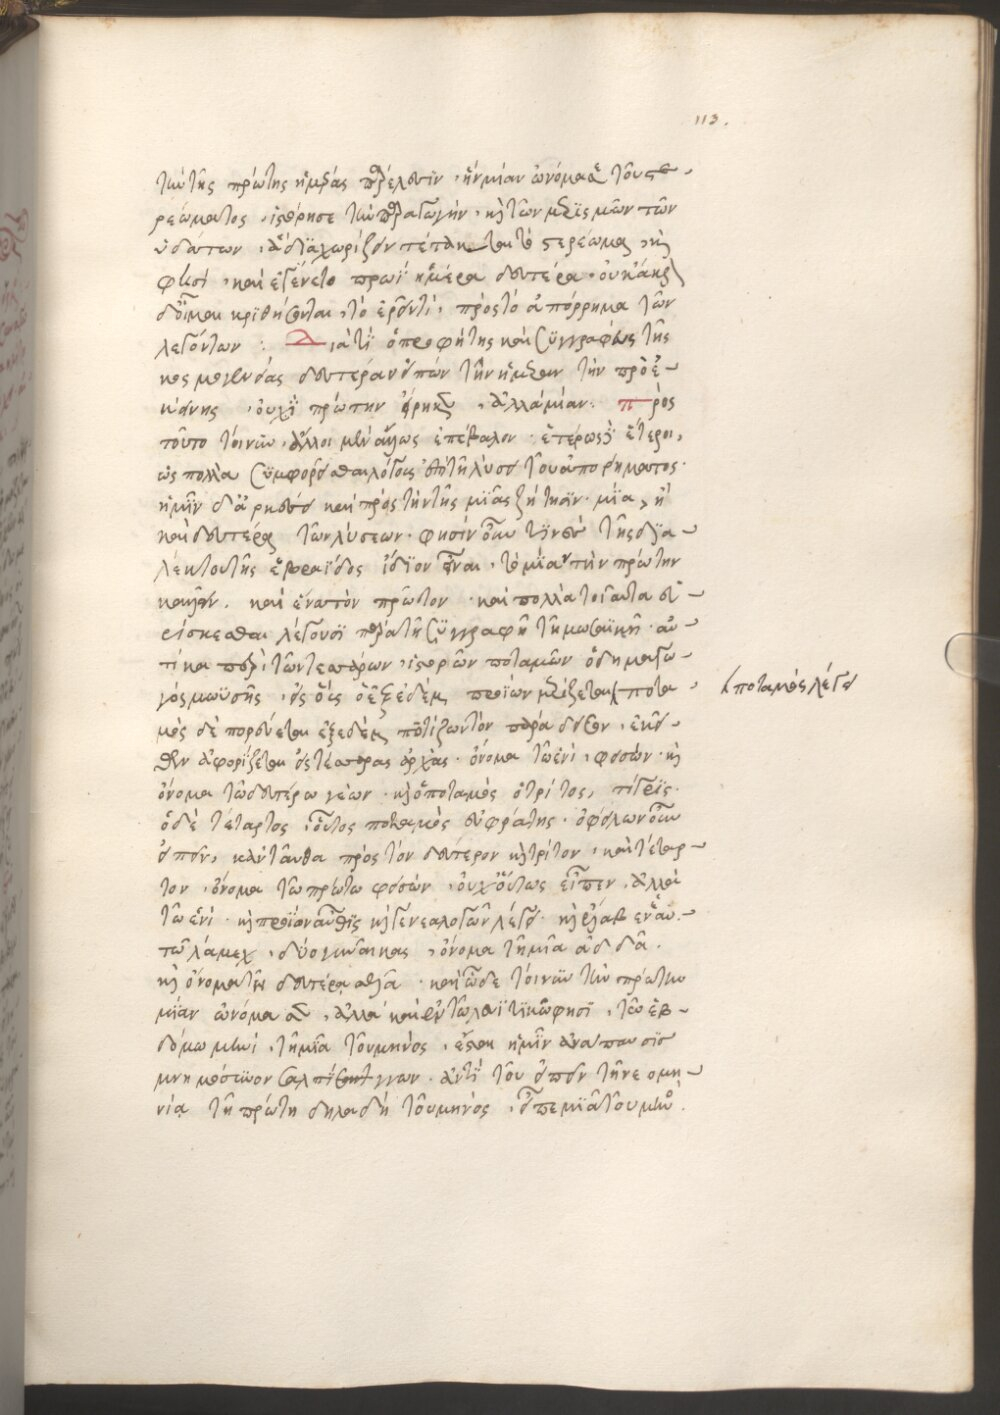 113.
τὴν τῆς πρώτης ἡμέρας παρέλευσιν, ἣν μίαν ὠνόμασε τοῦ στε-
ρεώματος, ἱστόρησε τὴν παραγωγὴν, καὶ τῶν μερισμῶν τῶν
ὑδάτων, ἃ διαχωρίζειν τέτακται τὸ στερέωμα,
φησί, καὶ ἐγένετο πρωΐ ἡμέρα δευτέρα. οὐκ
δόξομαι κριθήσονται, τὸ ἐροῦντι, πρὸς τὸ ἀπόρρημα τῶν
λεγόντων: Διατί ὁ προφήτης καὶ συγγραφεὺς τῆς
κοσμογενείας δευτέραν εἰπὼν τὴν ἡμέραν τὴν πρὸ ἐ-
κείνης, οὐχὶ πρώτην εἴρηκεν, ἀλλὰ μίαν: πρὸς
τοῦτο τοίνυν, ἄλλοι μὲν ἄλλως ἐπέβαλον. ἑτέρως δ' ἕτεροι,
ὡς πολλὰ συμφορεῖσθαι λόγοις ἐπὶ τῇ λύσει τοῦ ἀπορήματος.
ἡμῖν δ' ἀρκέσει καὶ πρὸς τὴν τῆς μιᾶς ζήτησιν. μία, ἢ
καὶ δευτέρα τῶν λύσεων. φησὶν οὖν τινὲς τῆς δια-
λέκτου τῆς ἑβραΐδος ἴδιον εἶναι, τὸ μίαν τὴν πρώτην
καλεῖν. καὶ ἕνα τὸν πρῶτον. καὶ πολλὰ τοιαῦτα εὑ-
ρίσκεσθαι λέγουσι παρὰ τῇ συγγραφῇ τῇ μωσαϊκῇ. αὐ-
τίκα περὶ τῶν τεσσάρων, ἱστορῶν ποταμῶν ὁ δημαγω-
γὸς μωϋσῆς, ὡς εἷς ὁ ἐξ ἐδὲμ προϊὼν μερίζεται,
ποταμὸς λέγει
ποτα-
μὸς δὲ πορεύεται ἐξ ἐδὲμ ποτίζων τὸν παράδεισον, ἐκεῖ-
θεν ἀφορίζεται εἰς τέσσαρας ἀρχάς. ὄνομα τῷ ἑνὶ, φεισών. καὶ
ὄνομα τῷ δευτέρῳ γεών. καὶ ὁ ποταμὸς ὁ τρίτος, τίγρις.
ὁ δὲ τέταρτος, οὗτος ποταμὸς εὐφράτης. ὀφείλων οὖν
εἰπεῖν, κἀνταῦθα πρὸς τὸν δεύτερον καὶ τρίτον, καὶ τέταρ-
τον, ὄνομα τῷ πρώτῳ φεισών, οὐχ οὕτως εἶπεν, ἀλλὰ
τῷ ἑνί. καὶ προϊὼν αὖθις καὶ γενεαλογῶν λέγει. καὶ ἔλαβεν ἑαυ-
τῷ λάμεχ, δύο γυναῖκας, ὄνομα τῇ μιᾷ ἀδδᾶ.
καὶ ὄνομα τῇ δευτέρᾳ σελᾶ. καὶ ὧδε τοίνυν τὴν πρώτην
μίαν ὠνόμασεν, ἀλλὰ καὶ ἐν τῷ λευϊτικῷ φησὶ, τῷ ἑβ-
δόμῳ μηνὶ, τῇ μιᾷ τοῦ μηνὸς, ἔσται ἡμῖν ἀνάπαυσις
μνημόσυνον σαλπίγγων. ἀντὶ τοῦ εἰπεῖν τῇ νεομη-
νίᾳ τῇ πρώτῃ δηλαδὴ τοῦ μηνὸς, εἶπε μιᾷ τοῦ μηνός.